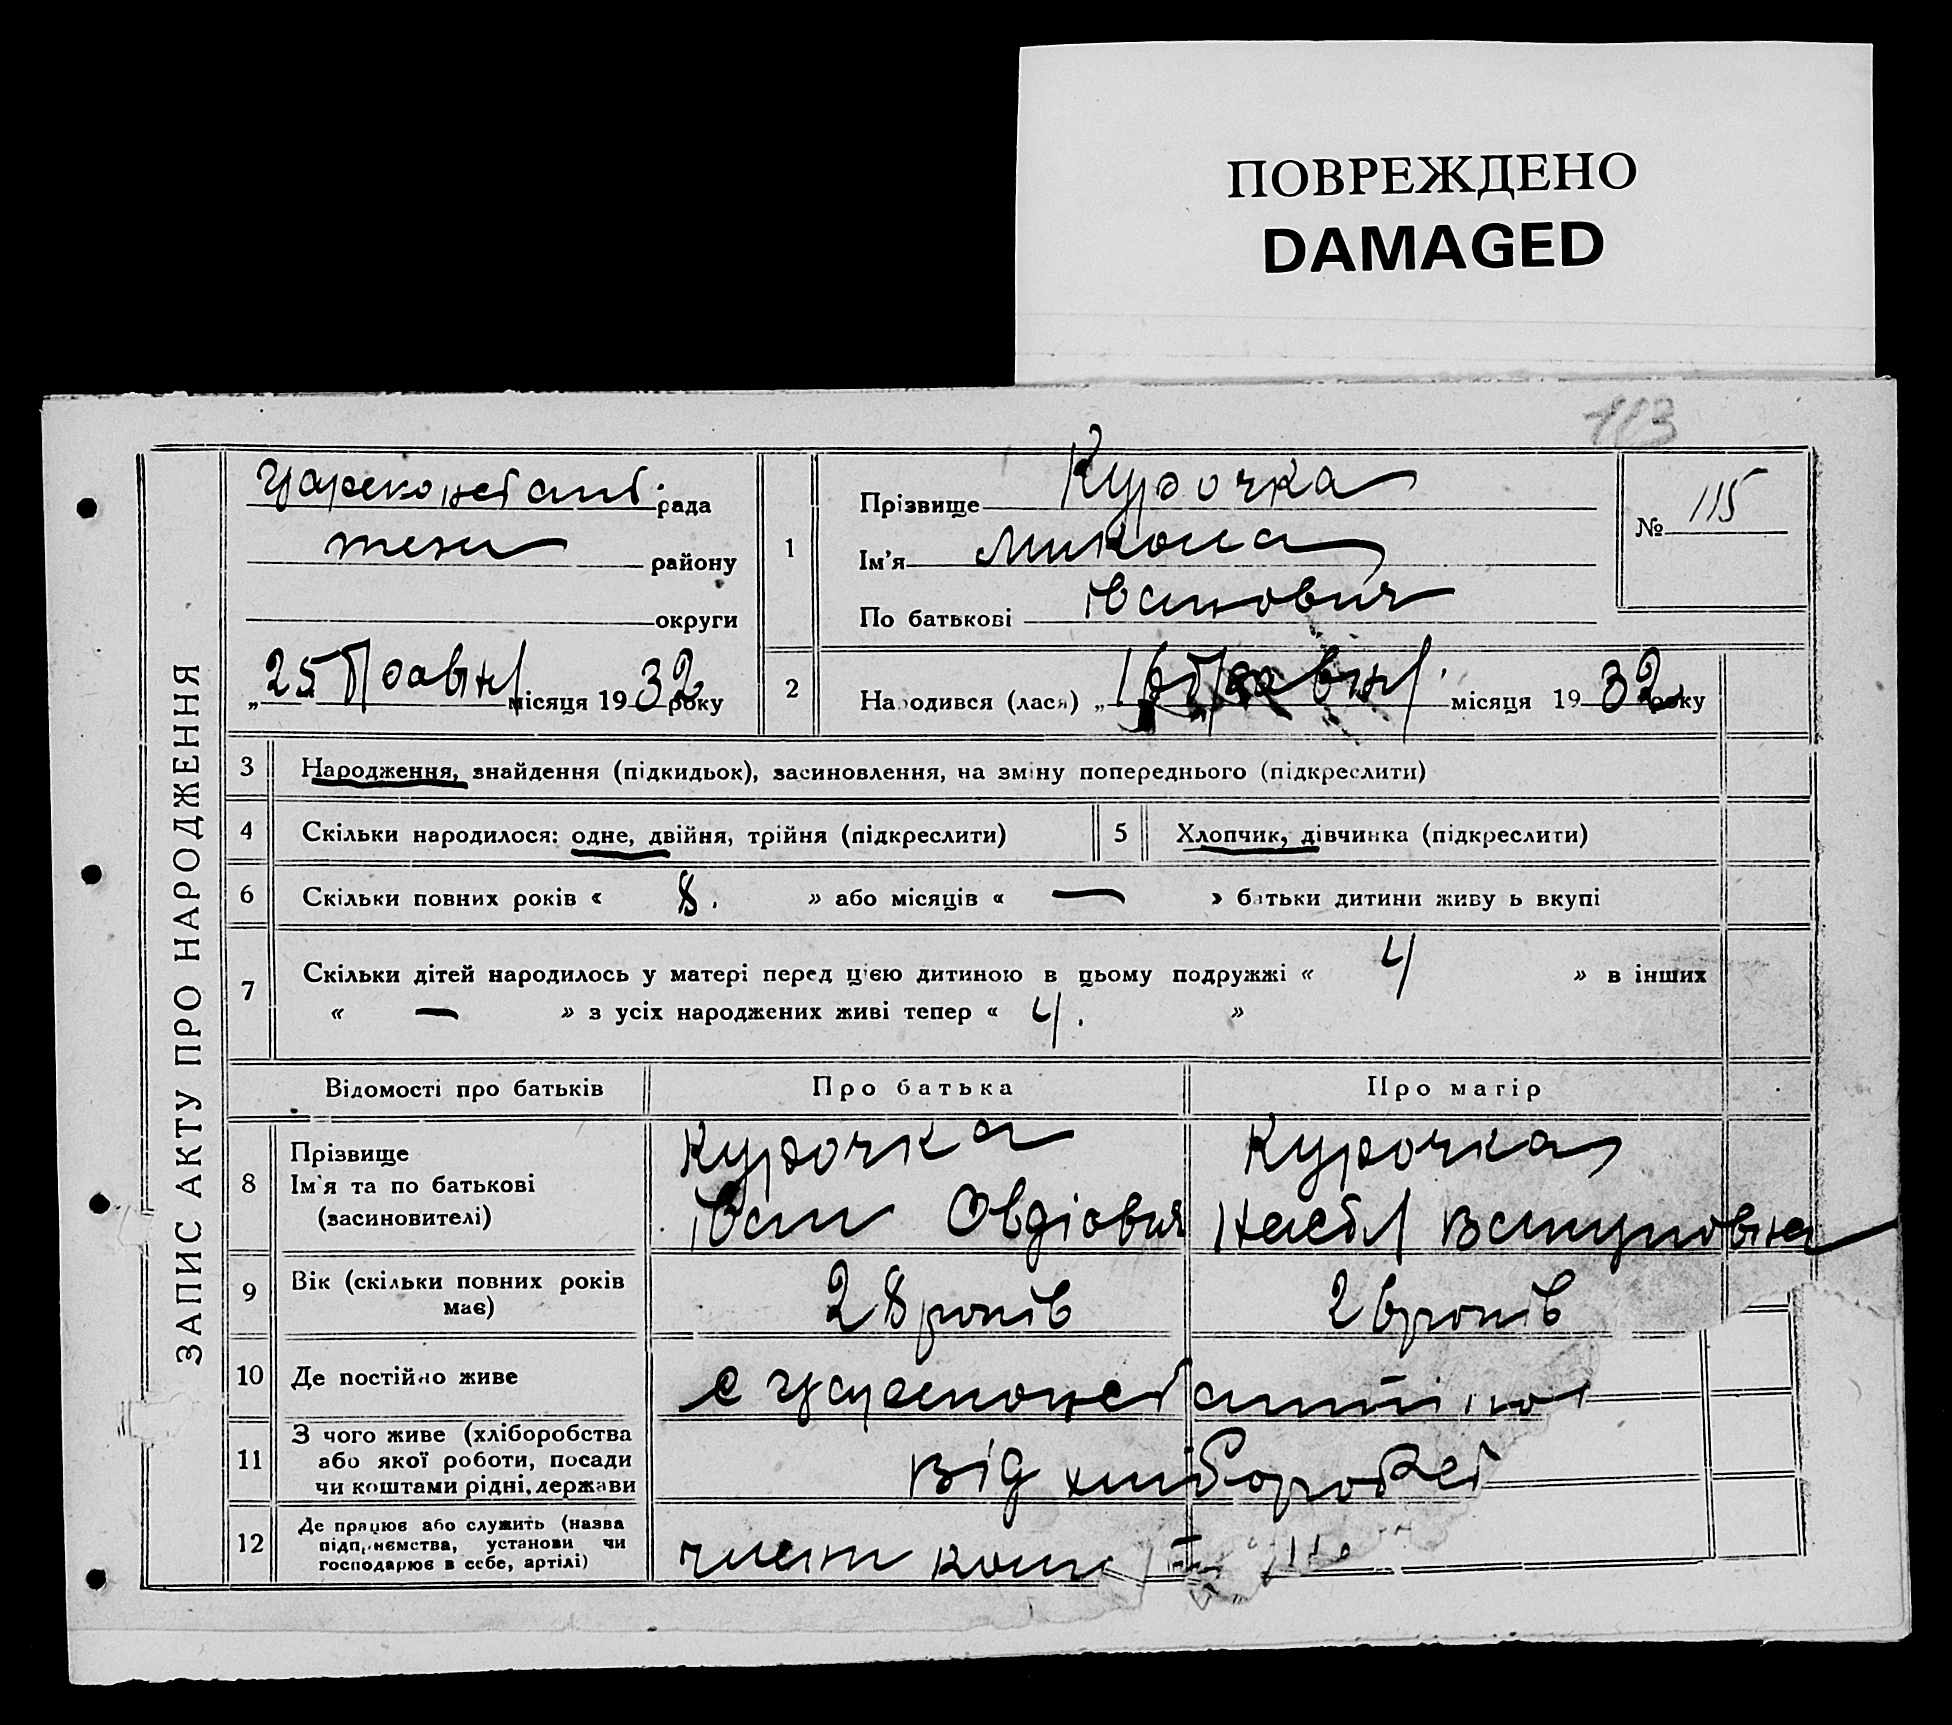 ПОВРЕЖДЕНО
DAMAGED
113
ЗАПИС АКТУ ПРО НАРОДЖЕННЯ
рада
району
округи
„25" Травня місяця 1932 року
1
Прізвище Курочка
Ім'я Микола
По батькові Іванович
№ 115
2
Народився (лася) „ місяця 1932 року
3 Народження, знайдення (підкидьок), засиновлення, на зміну попереднього (підкреслити)
4 Скільки народилося: одне, двійня, трійня (підкреслити)
5 Хлопчик, дівчинка (підкреслити)
6 Скільки повних років « 8. » або місяців « — » батьки дитини живуть вкупі
7 Скільки дітей народилось у матері перед цією дитиною в цьому подружжі « 4 » в інших
« — » з усіх народжених живі тепер « 4. »
Відомості про батьків Про батька Про матір
8 Прізвище
Ім'я та по батькові
(засиновителі)
Курочка Курочка
Іван Овдіович
9 Вік (скільки повних років
має)
28 років 26 років
10 Де постійно живе
с
11 З чого живе (хліборобства
або якої роботи, посади
чи коштами рідні, держави
від
12 Де працює або служить (назва
підприємства, установи чи
господарює в себе, артілі)
член